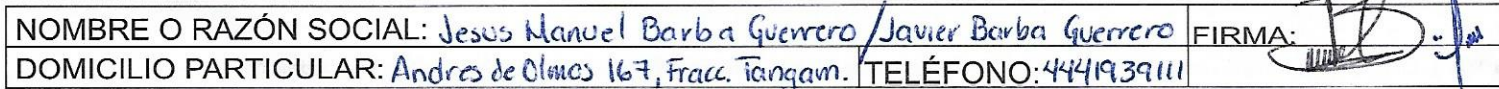 NOMBRE O RAZÓN SOCIAL: Jesus Manuel Barba Guerrero / Javier Barba Guerrero FIRMA:
DOMICILIO PARTICULAR: Andres de Olmos 167, Fracc. Tangam. TELÉFONO: 4441939111